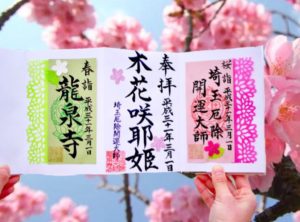 桜詣
平成三十一年三月一日
埼玉厄除
開運大師
奉拝
平成三十一年三月一日
木花咲耶姫
埼玉厄除開運大師
春詣
平成三十一年三月一日
龍泉寺